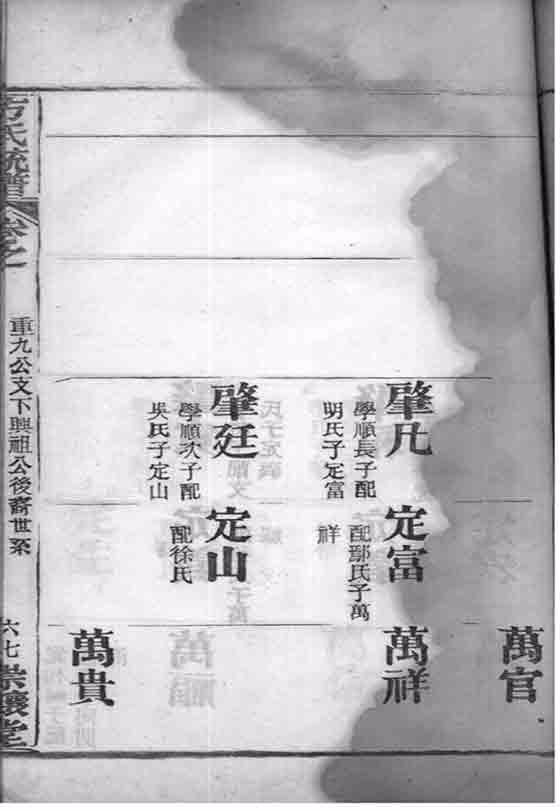 萬官
肇凡
學順長子配
明氏子定富
定富
配鄢氏子萬
祥
萬祥
肇廷
學順次子配
吳氏子定山
定山
配徐氏
萬貴
氏統譜
卷之
重九公文下興祖公後裔世系
六七
崇禳堂